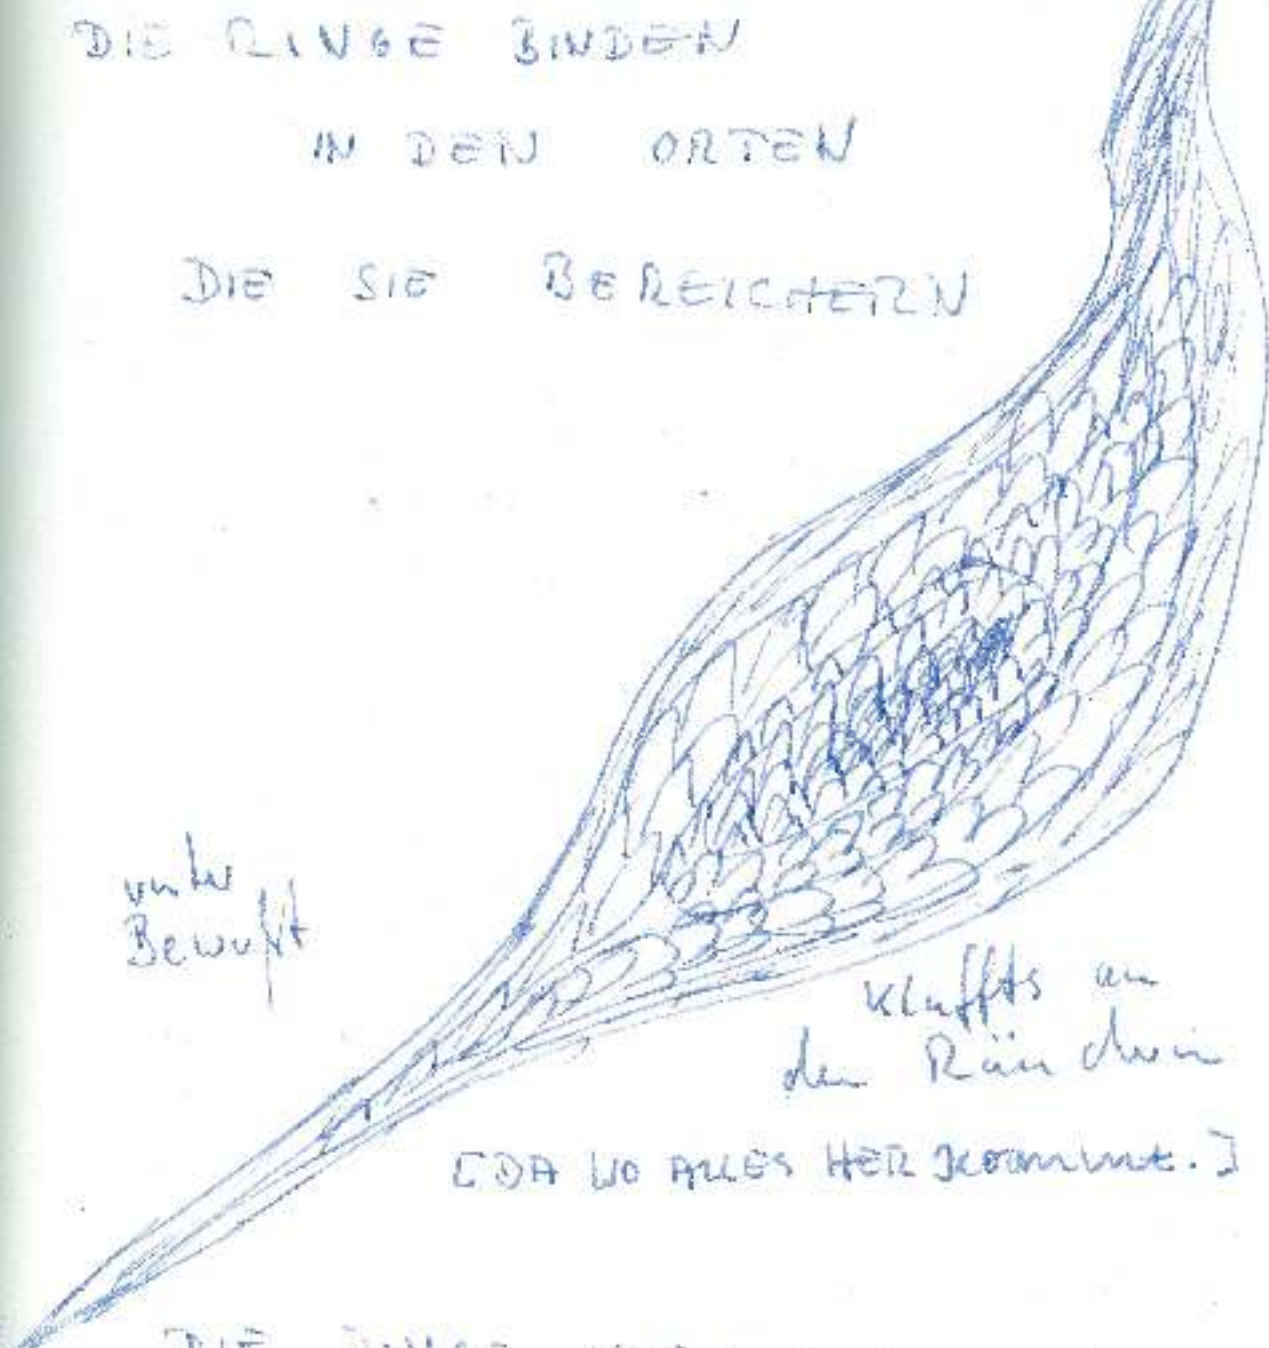 DIE RINGE BINDEN
IN DEN ORTEN
DIE SIE BEREICHERN
unter
Bewußt
klaffts an
den Rändern
[DA WO ALLES HER kommt.]
DIE RINGE